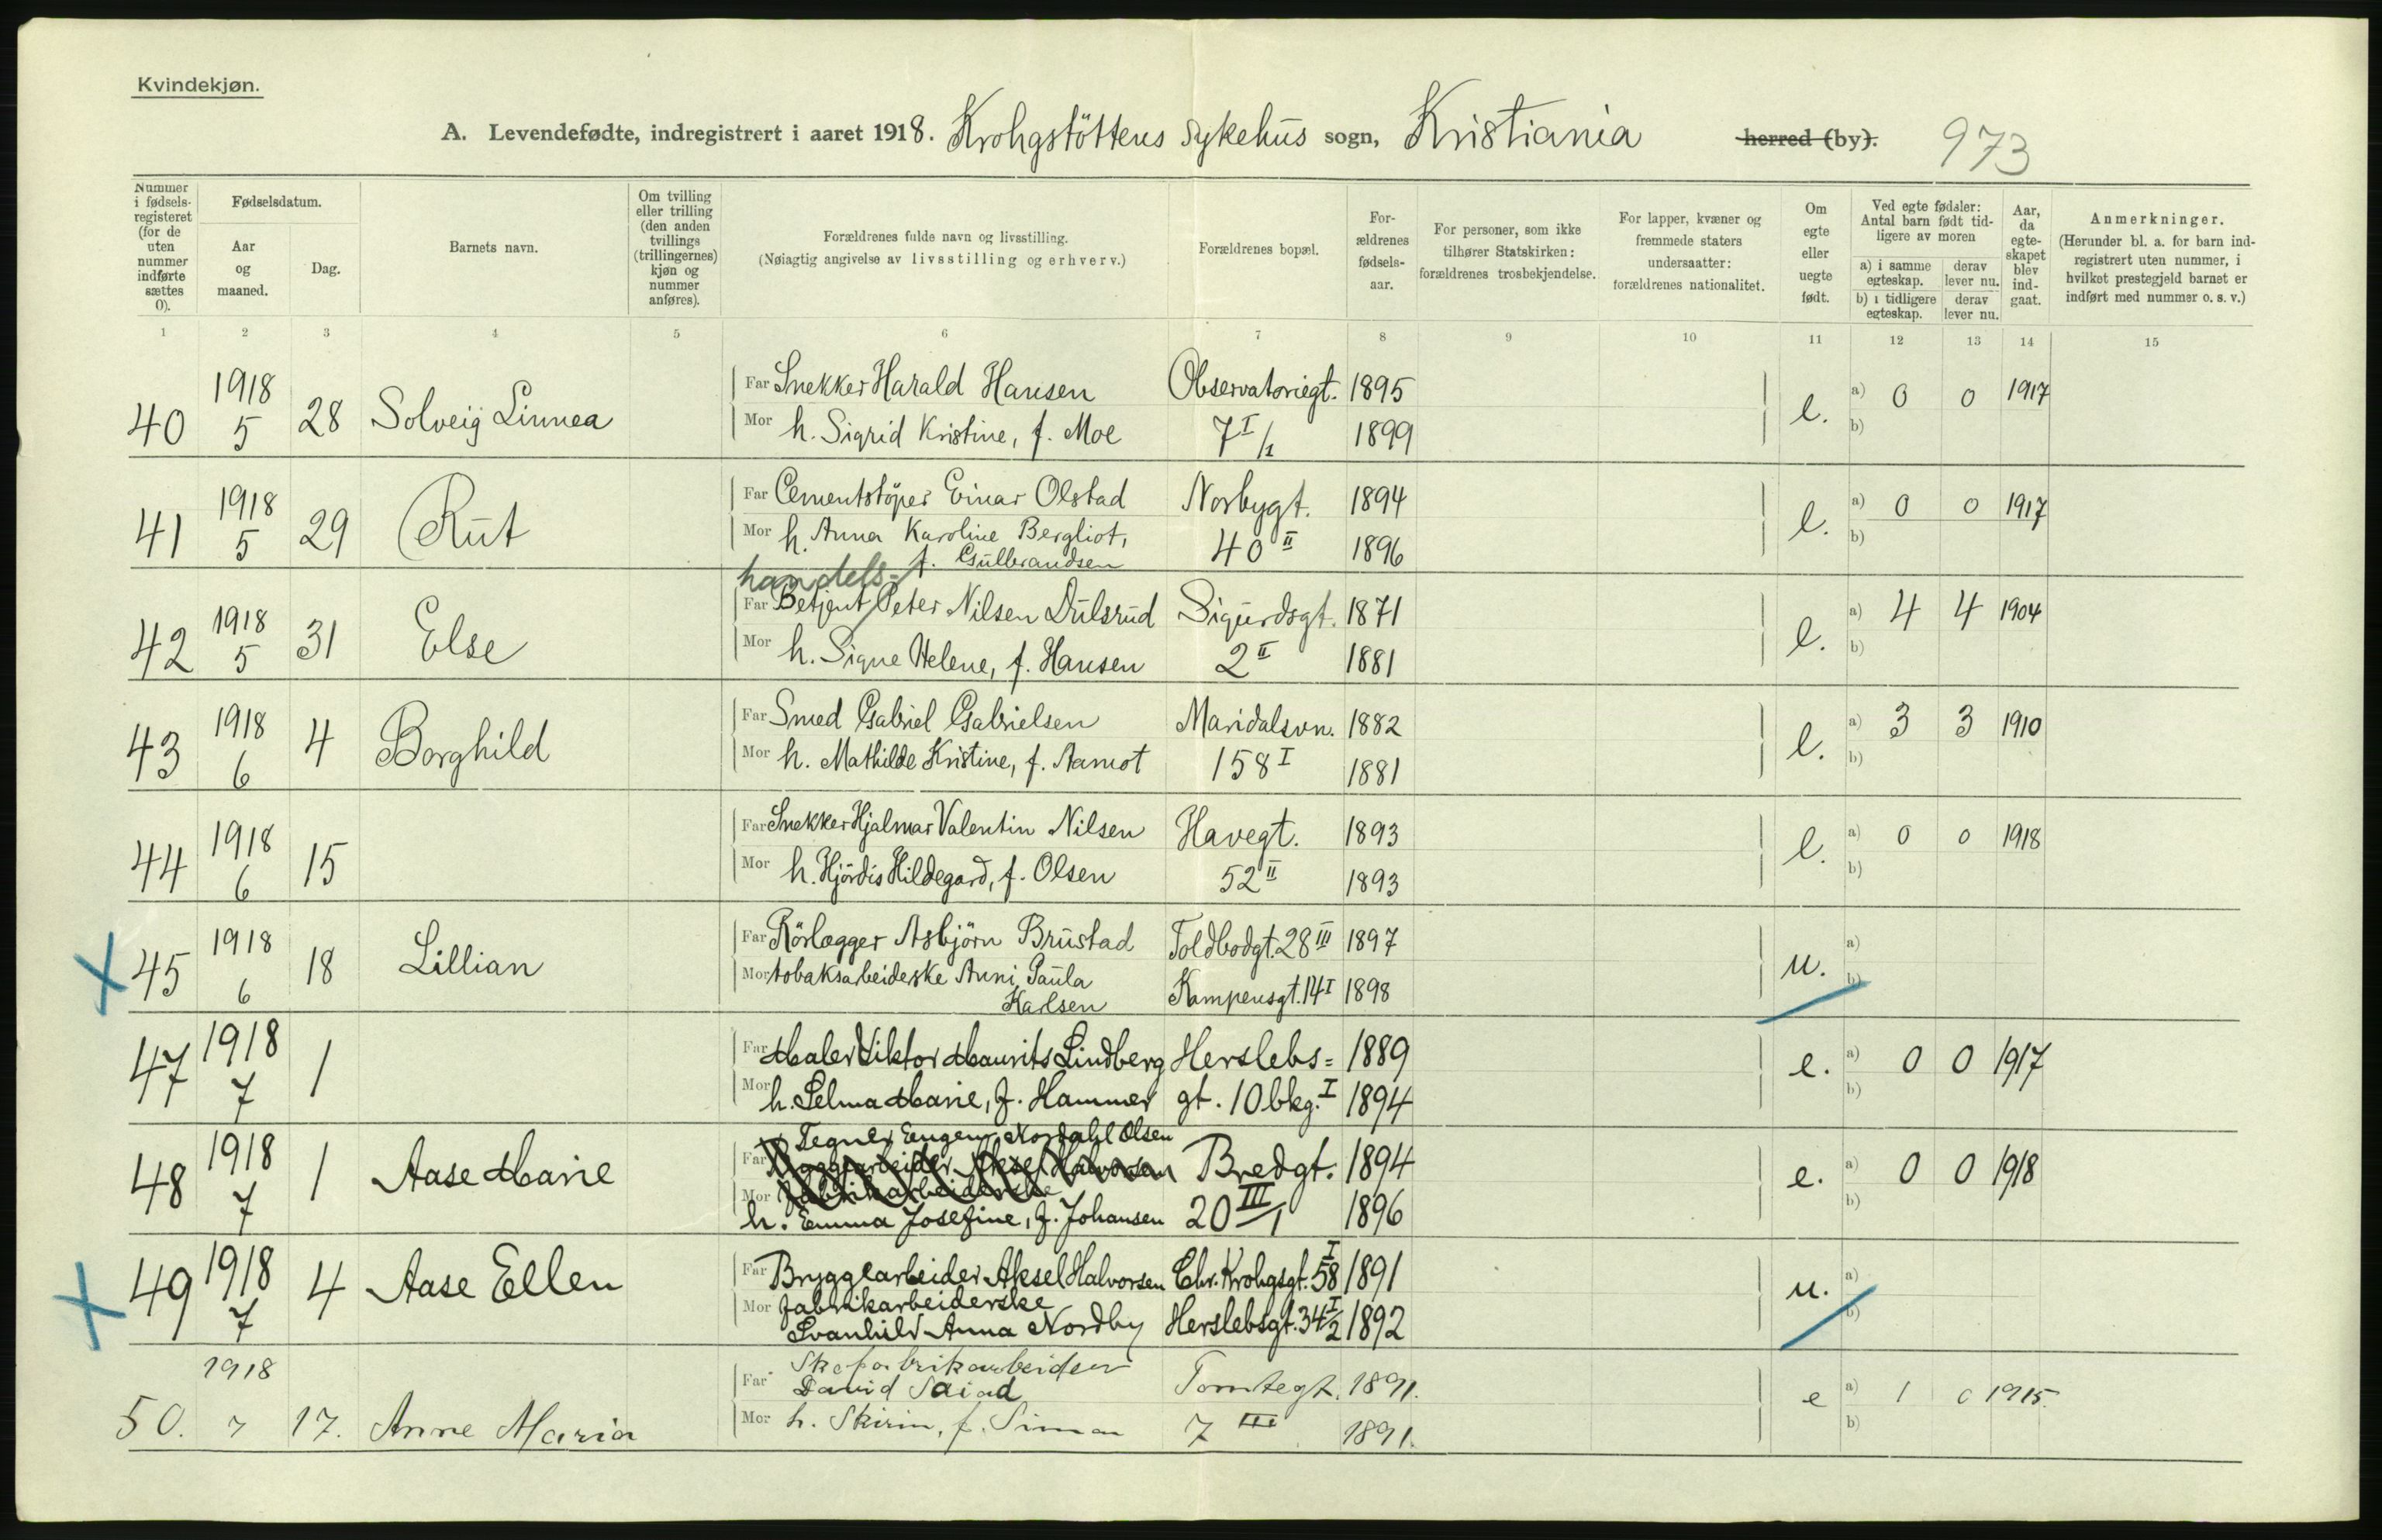 Kvindekjøn.
A. Levendefødte, indregistrert i aaret 1918. Krohgstöttens Sykehus sogn, Kristiania herred (by). 973
Nummer i fødselsregisteret (for de uten nummer indførte sættes 0).
Fødselsdatum.
Aar og maaned.
Dag.
Barnets navn.
Om tvilling eller trilling (den anden tvillings (trillingernes) kjøn og nummer anføres).
Forældrenes fulde navn og livsstilling.
(Nøiagtig angivelse av livsstilling og erhverv.)
Forældrenes bopæl.
Forældrenes fødselsaar.
For personer, som ikke tilhører Statskirken: forældrenes trosbekjendelse.
For lapper, kvæner og fremmede staters undersaatter: forældrenes nationalitet.
Om egte eller uegte født.
Ved egte fødsler: Antal barn født tidligere av moren
a) i samme egteskap. derav lever nu.
b) i tidligere egteskap. derav lever nu.
Aar, da egteskapet blev indgaat.
Anmerkninger.
(Herunder bl. a. for barn indregistrert uten nummer, i hvilket prestegjeld barnet er indført med nummer o. s. v.)
1 2 3 4 5 6 7 8 9 10 11 12 13 14 15
40 1918 5 28 Solveig Linnea
Far Snekker Harald Hansen Observatoriegt. 1895 e. a) 0 0 1917
Mor h. Sigrid Kristine, f. Moe 7 I/1 1899 b)
41 1918 5 29 Rut
Far Cementstöper Einar Olstad Norbygt. 1894 e. a) 0 0 1917
Mor h. Anna Karoline Bergliot, 40 II 1896 b)
f. Gulbrandsen
handels-
42 1918 5 31 Else
Far Betjent Peter Nilsen Dulsrud Sigurdsgt. 1871 e. a) 4 4 1904
Mor h. Signe Helene, f. Hansen 2 II 1881 b)
43 1918 6 4 Borghild
Far Smed Gabriel Gabrielsen Maridalsvn. 1882 e. a) 3 3 1910
Mor h. Mathilde Kristine, f. Aamot 158 I 1881 b)
44 1918 6 15
Far Snekker Hjalmar Valentin Nilsen Havegt. 1893 e. a) 0 0 1918
Mor h. Hjördis Hildegard, f. Olsen 52 II 1893 b)
X 45 1918 6 18 Lillian
Far Rörlægger Asbjörn Brustad Toldbodgt. 28 III 1897 u. a)
Mor tobaksarbeiderske Anni Paula Kampensgt. 14 I 1898 b)
Karlsen
47 1918 7 1
Far Maler Viktor Maurits Lindberg Herslebs= 1889 e. a) 0 0 1917
Mor h. Selma Marie, f. Hammer gt. 10 bkg. I 1894 b)
48 1918 7 1 Aase Marie
Tegner Eugen Nordahl Olsen
Far Bryggearbeider Aksel Halvorsen Bredgt. 1894 e. a) 0 0 1918
Mor Fabrikarbeiderske b)
h. Emma Josefine, f. Johansen 20 III/1 1896
X 49 1918 7 4 Aase Ellen
Far Bryggearbeider Aksel Halvorsen Chr. Krohgsgt. 58 I 1891 u. a)
Mor Fabrikarbeiderske b)
Svanhild Anna Nordby Herslebsgt. 34 I/2 1892
50. 1918 7 17. Anne Maria
Skofabrikarbeider
Far David Saiad Tomtegt. 1891. e a) 1 0 1915.
Mor h. Skirin, f. Simon 7 III 1891. b)